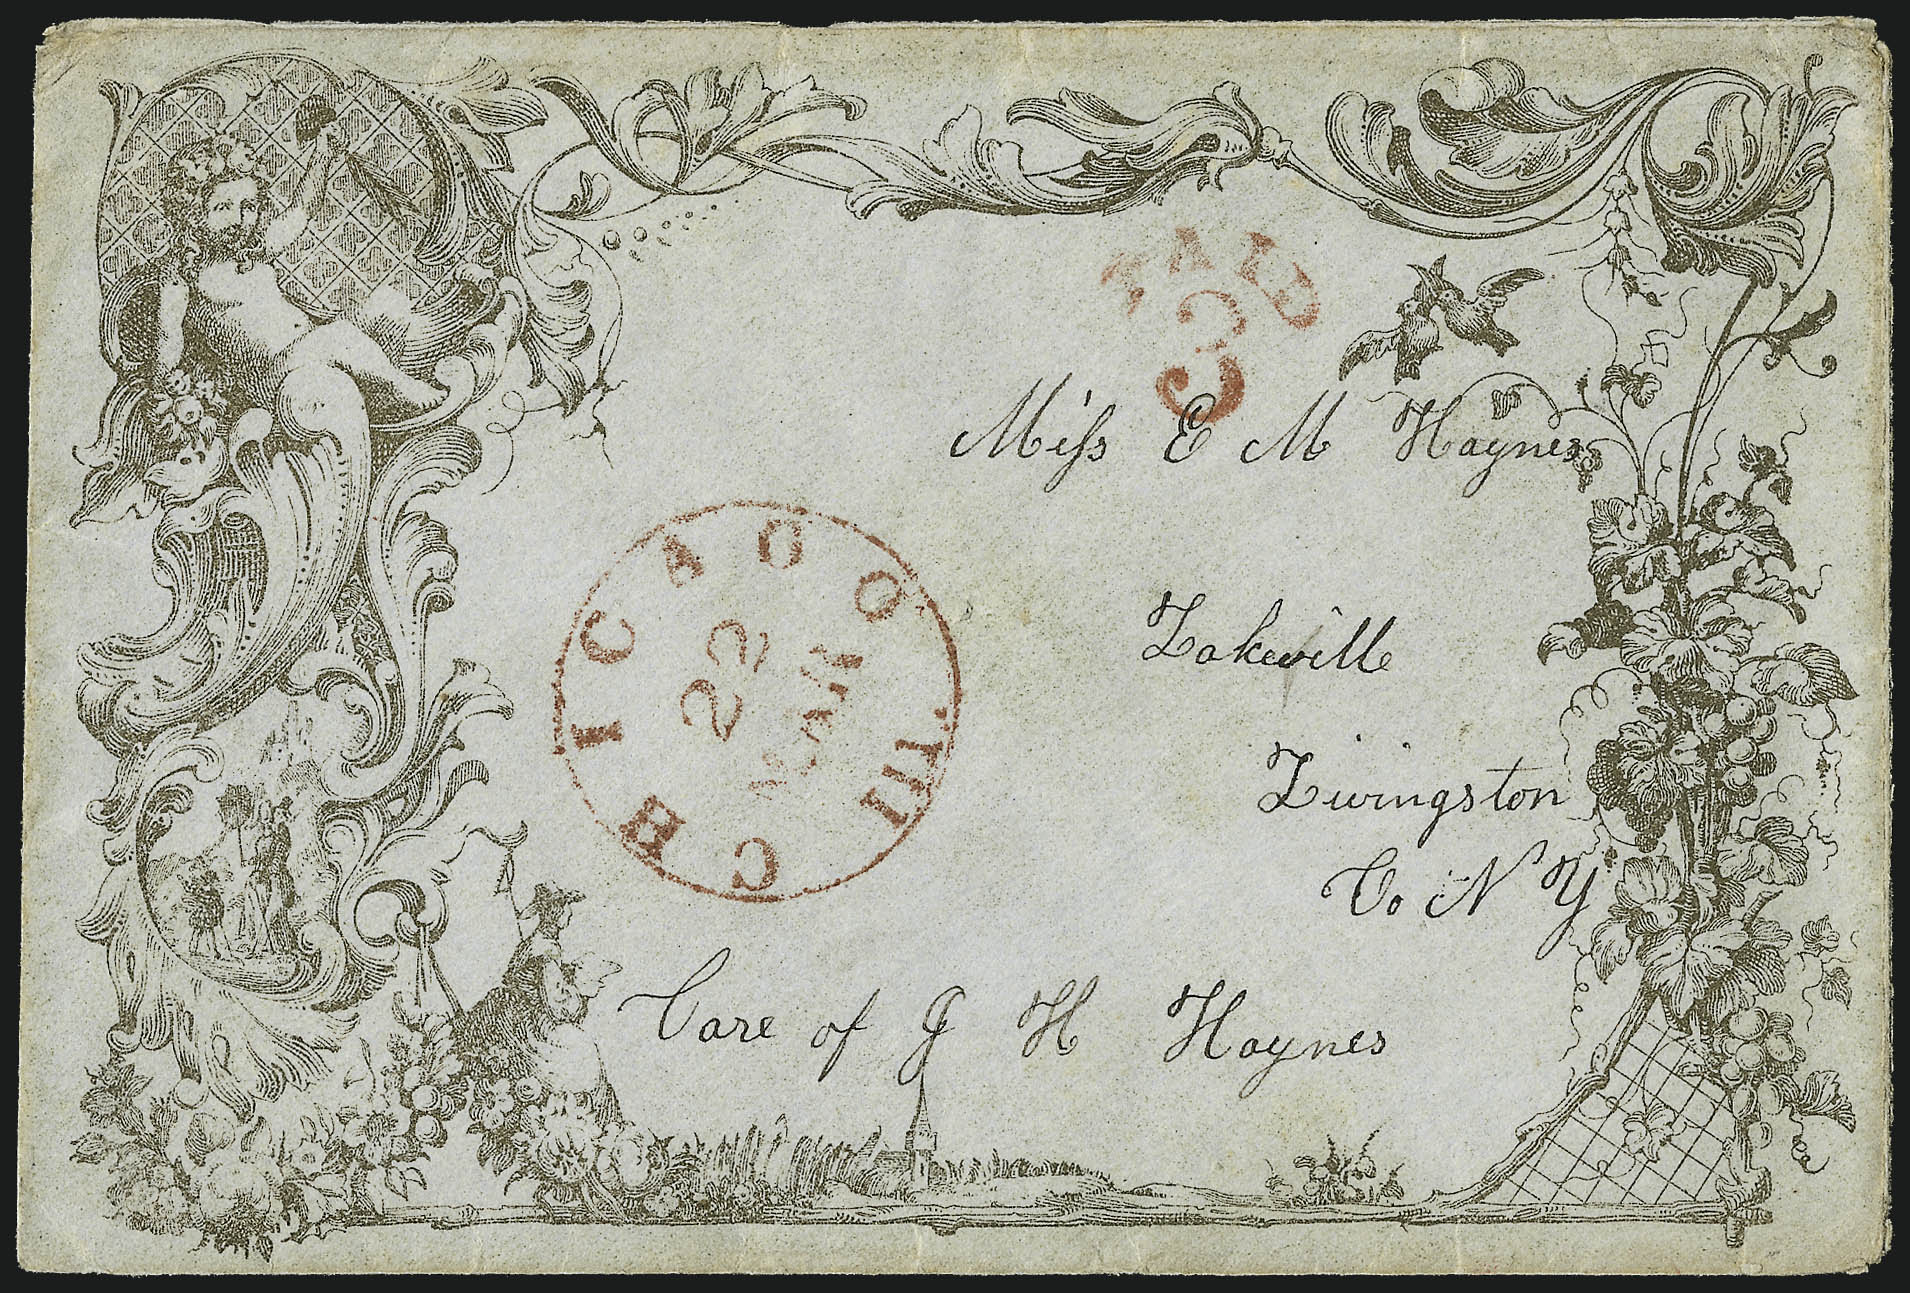 PAID
3
Miſs E M Haynes
Lakeville
Livingston
Co N Y
Care of J H Haynes
CHICAGO Ill.
22
MAR